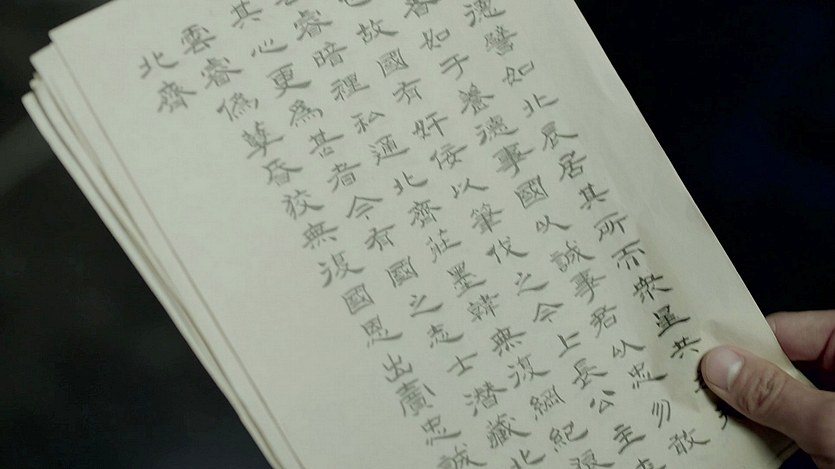 德譬如北辰居其所而衆星共
如于養德事國以誠事君以忠勿敢
故國有奸佞以筆伐之今上長公主
睿暗裡私通北齊莊墨韓無復綱紀
其心更為甚者今有國之志士潛藏北
雲睿僞孽昏狡無復國恩出賣忠誠
北齊